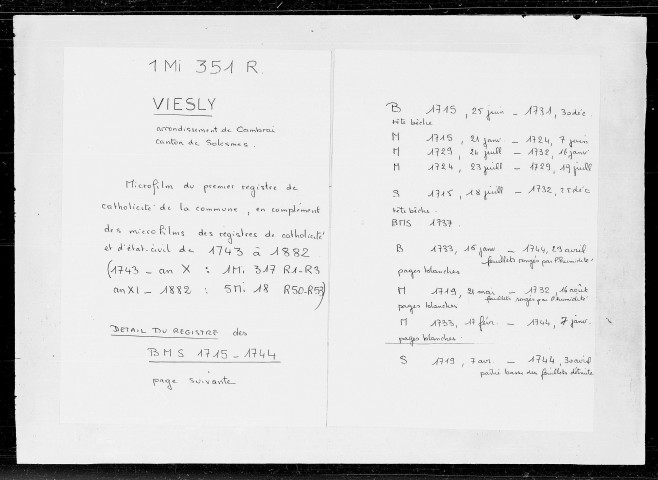 1 Mi 351 R
VIESLY
arrondissement de Cambrai
canton de Solesmes.
Microfilm du premier registre de
catholicité de la commune, en complément
des microfilms des registres de catholicité
et d'état-civil de 1743 à 1882
(1743 - an X : 1 Mi 317 R1-R3
an XI - 1882 : 5 Mi 18 R50-R57)
DETAIL DU REGISTRE des
BMS 1715-1744
page suivante
B 1715, 25 juin - 1731, 30 déc.
tête bêche
M 1715, 21 janv. - 1724, 7 juin
M 1729, 26 juill - 1732, 16 janv
M 1724, 23 juill - 1729, 19 juill
S 1715, 18 juill - 1732, 25 déc
tête bêche.
BMS 1737.
B 1733, 16 janv - 1744, 29 avril
feuillets rongés par l'humidité.
pages blanches
M 1719, 21 mai - 1732, 16 août
feuillets rongés par l'humidité
pages blanches
M 1733, 17 févr. - 1744, 7 janv.
pages blanches.
S 1719, 7 avr. - 1744, 30 avril
partie basse des feuillets détruite